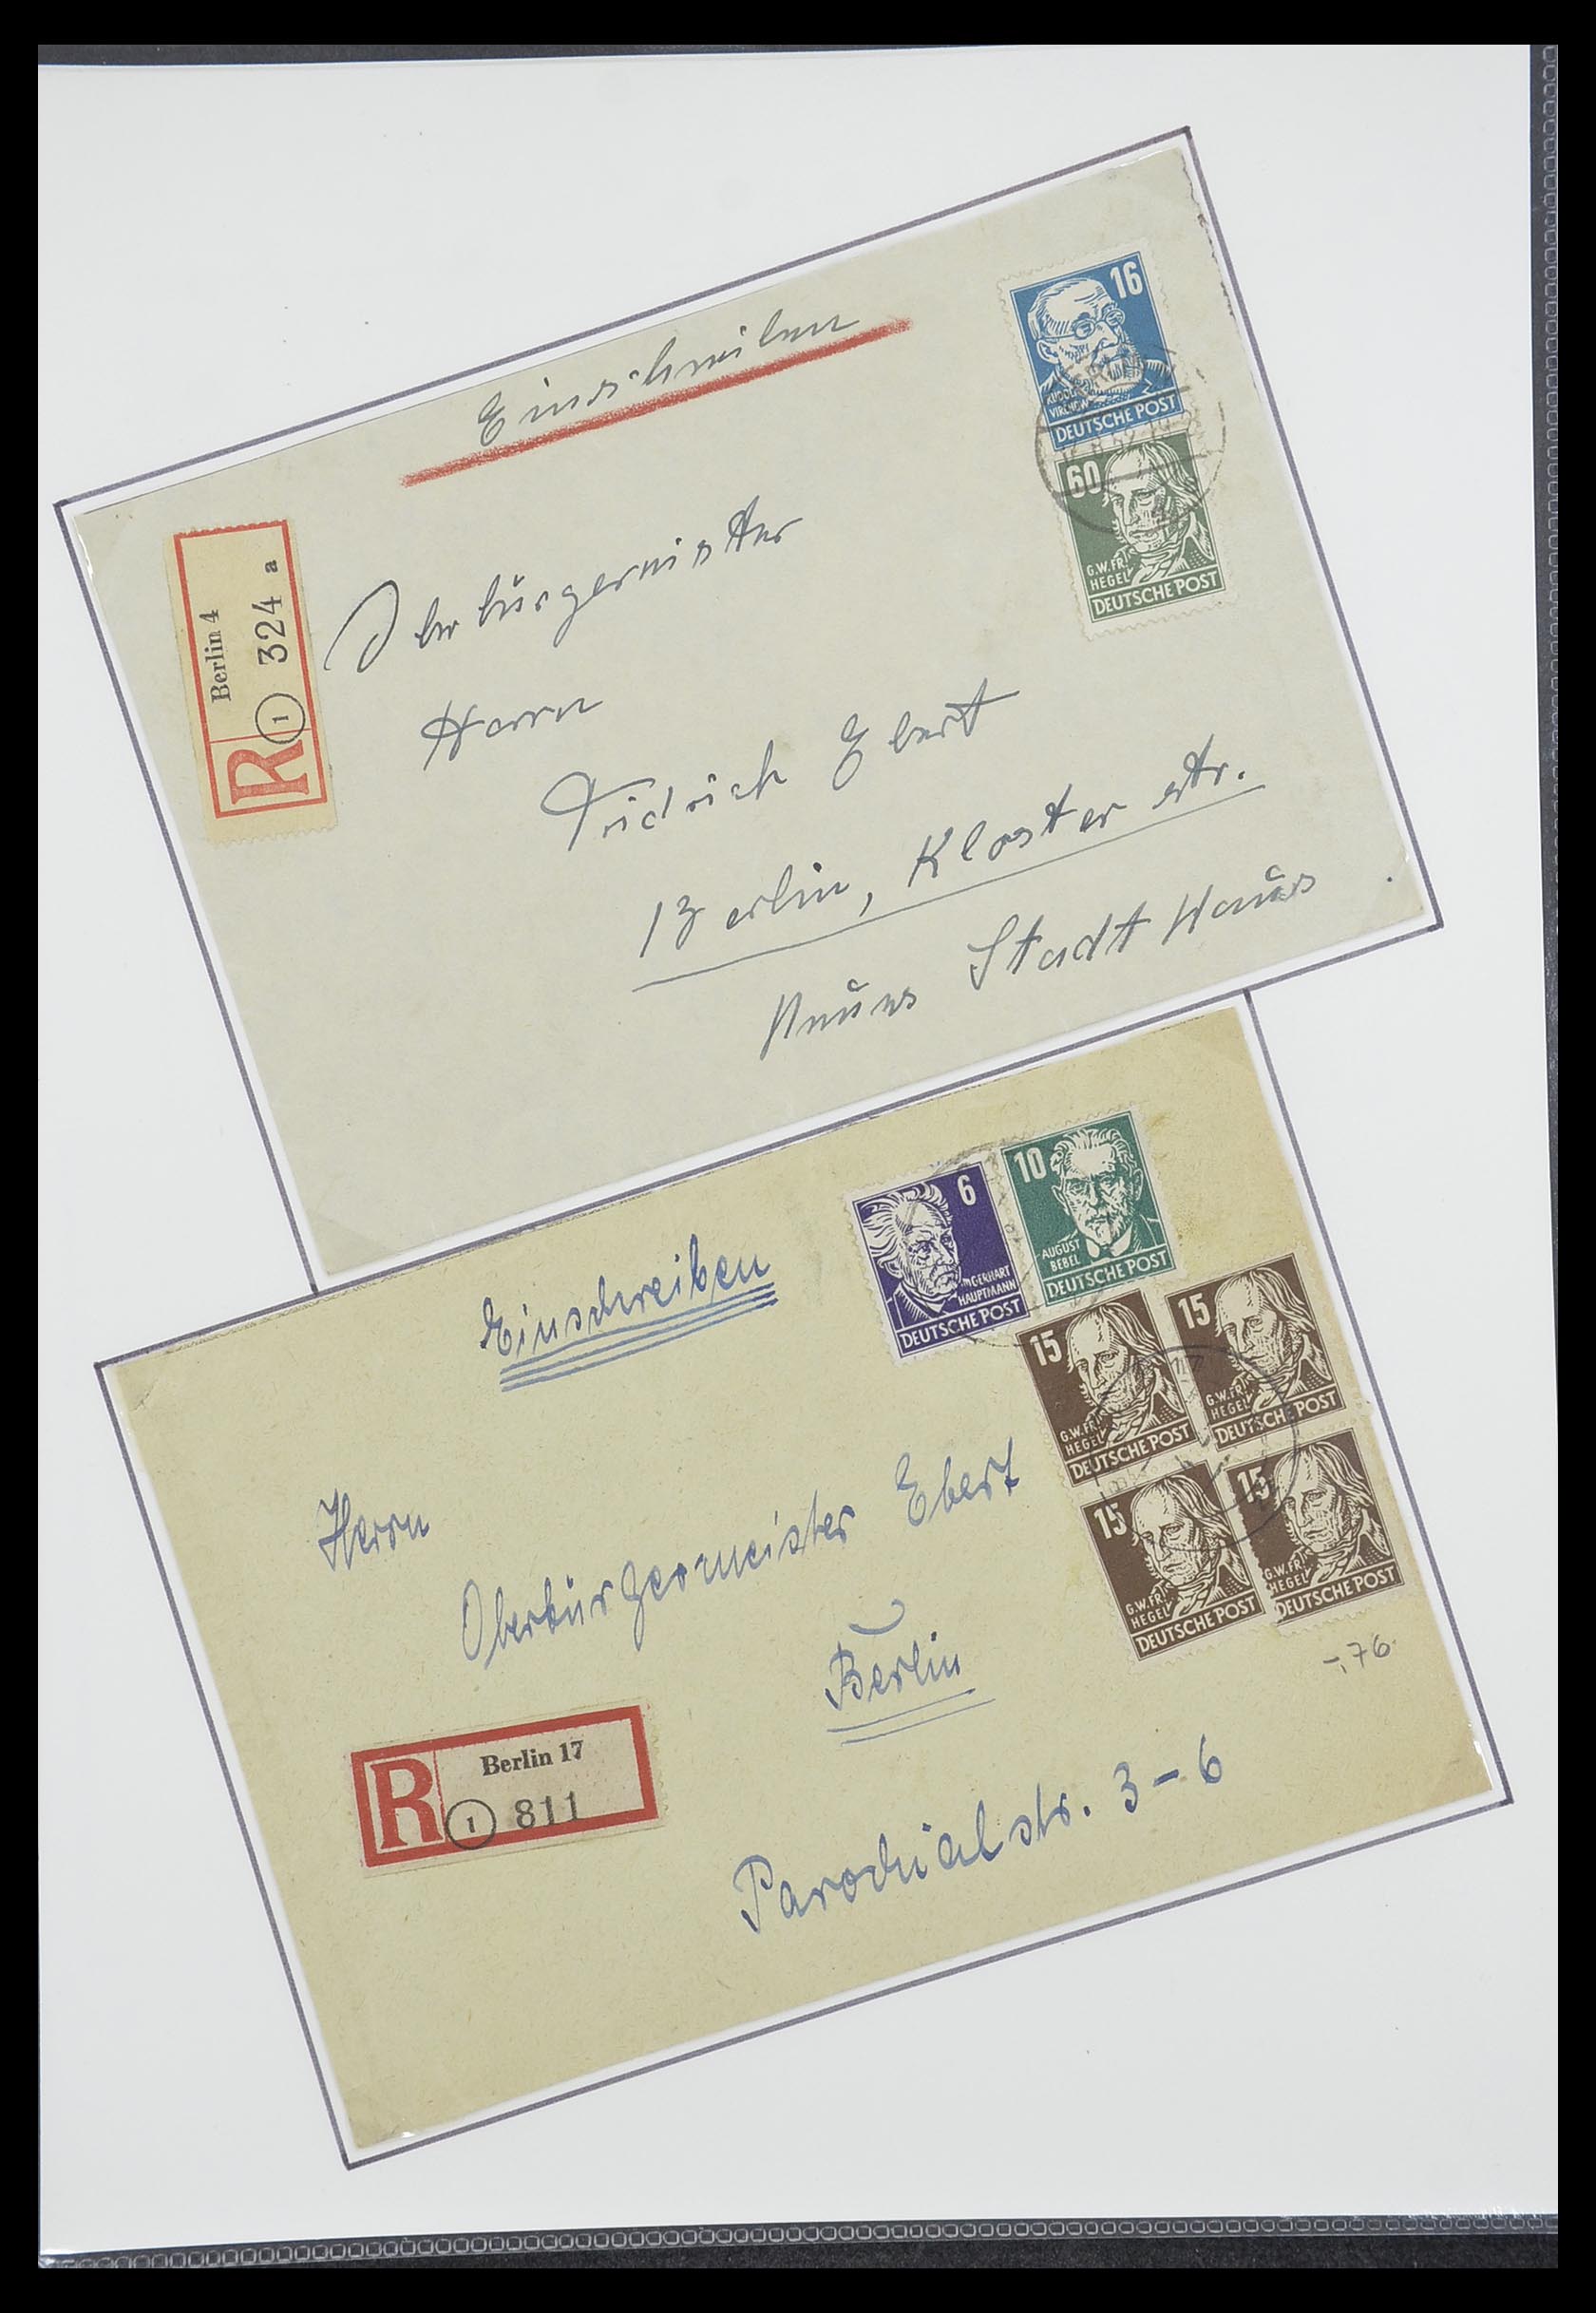 Einschreiben
16
RUDOLF
VIRCHOW
DEUTSCHE POST
60
G.W.FR.
HEGEL
DEUTSCHE POST
Berlin 4
R 1 324 a
Oberbürgermeister
Herrn
Fridrich Ebert
Berlin, Kloster str.
Neues Stadt Haus
Einschreiben
6
GERHART
HAUPTMANN
DEUTSCHE POST
10
AUGUST
BEBEL
DEUTSCHE POST
15
G.W.FR.
HEGEL
DEUTSCHE POST
15
G.W.FR.
HEGEL
DEUTSCHE POST
15
G.W.FR.
HEGEL
DEUTSCHE POST
15
G.W.FR.
HEGEL
DEUTSCHE POST
-,76
Herrn
Oberbürgermeister Ebert
Berlin
R Berlin 17
1 811
Parochialstr. 3-6